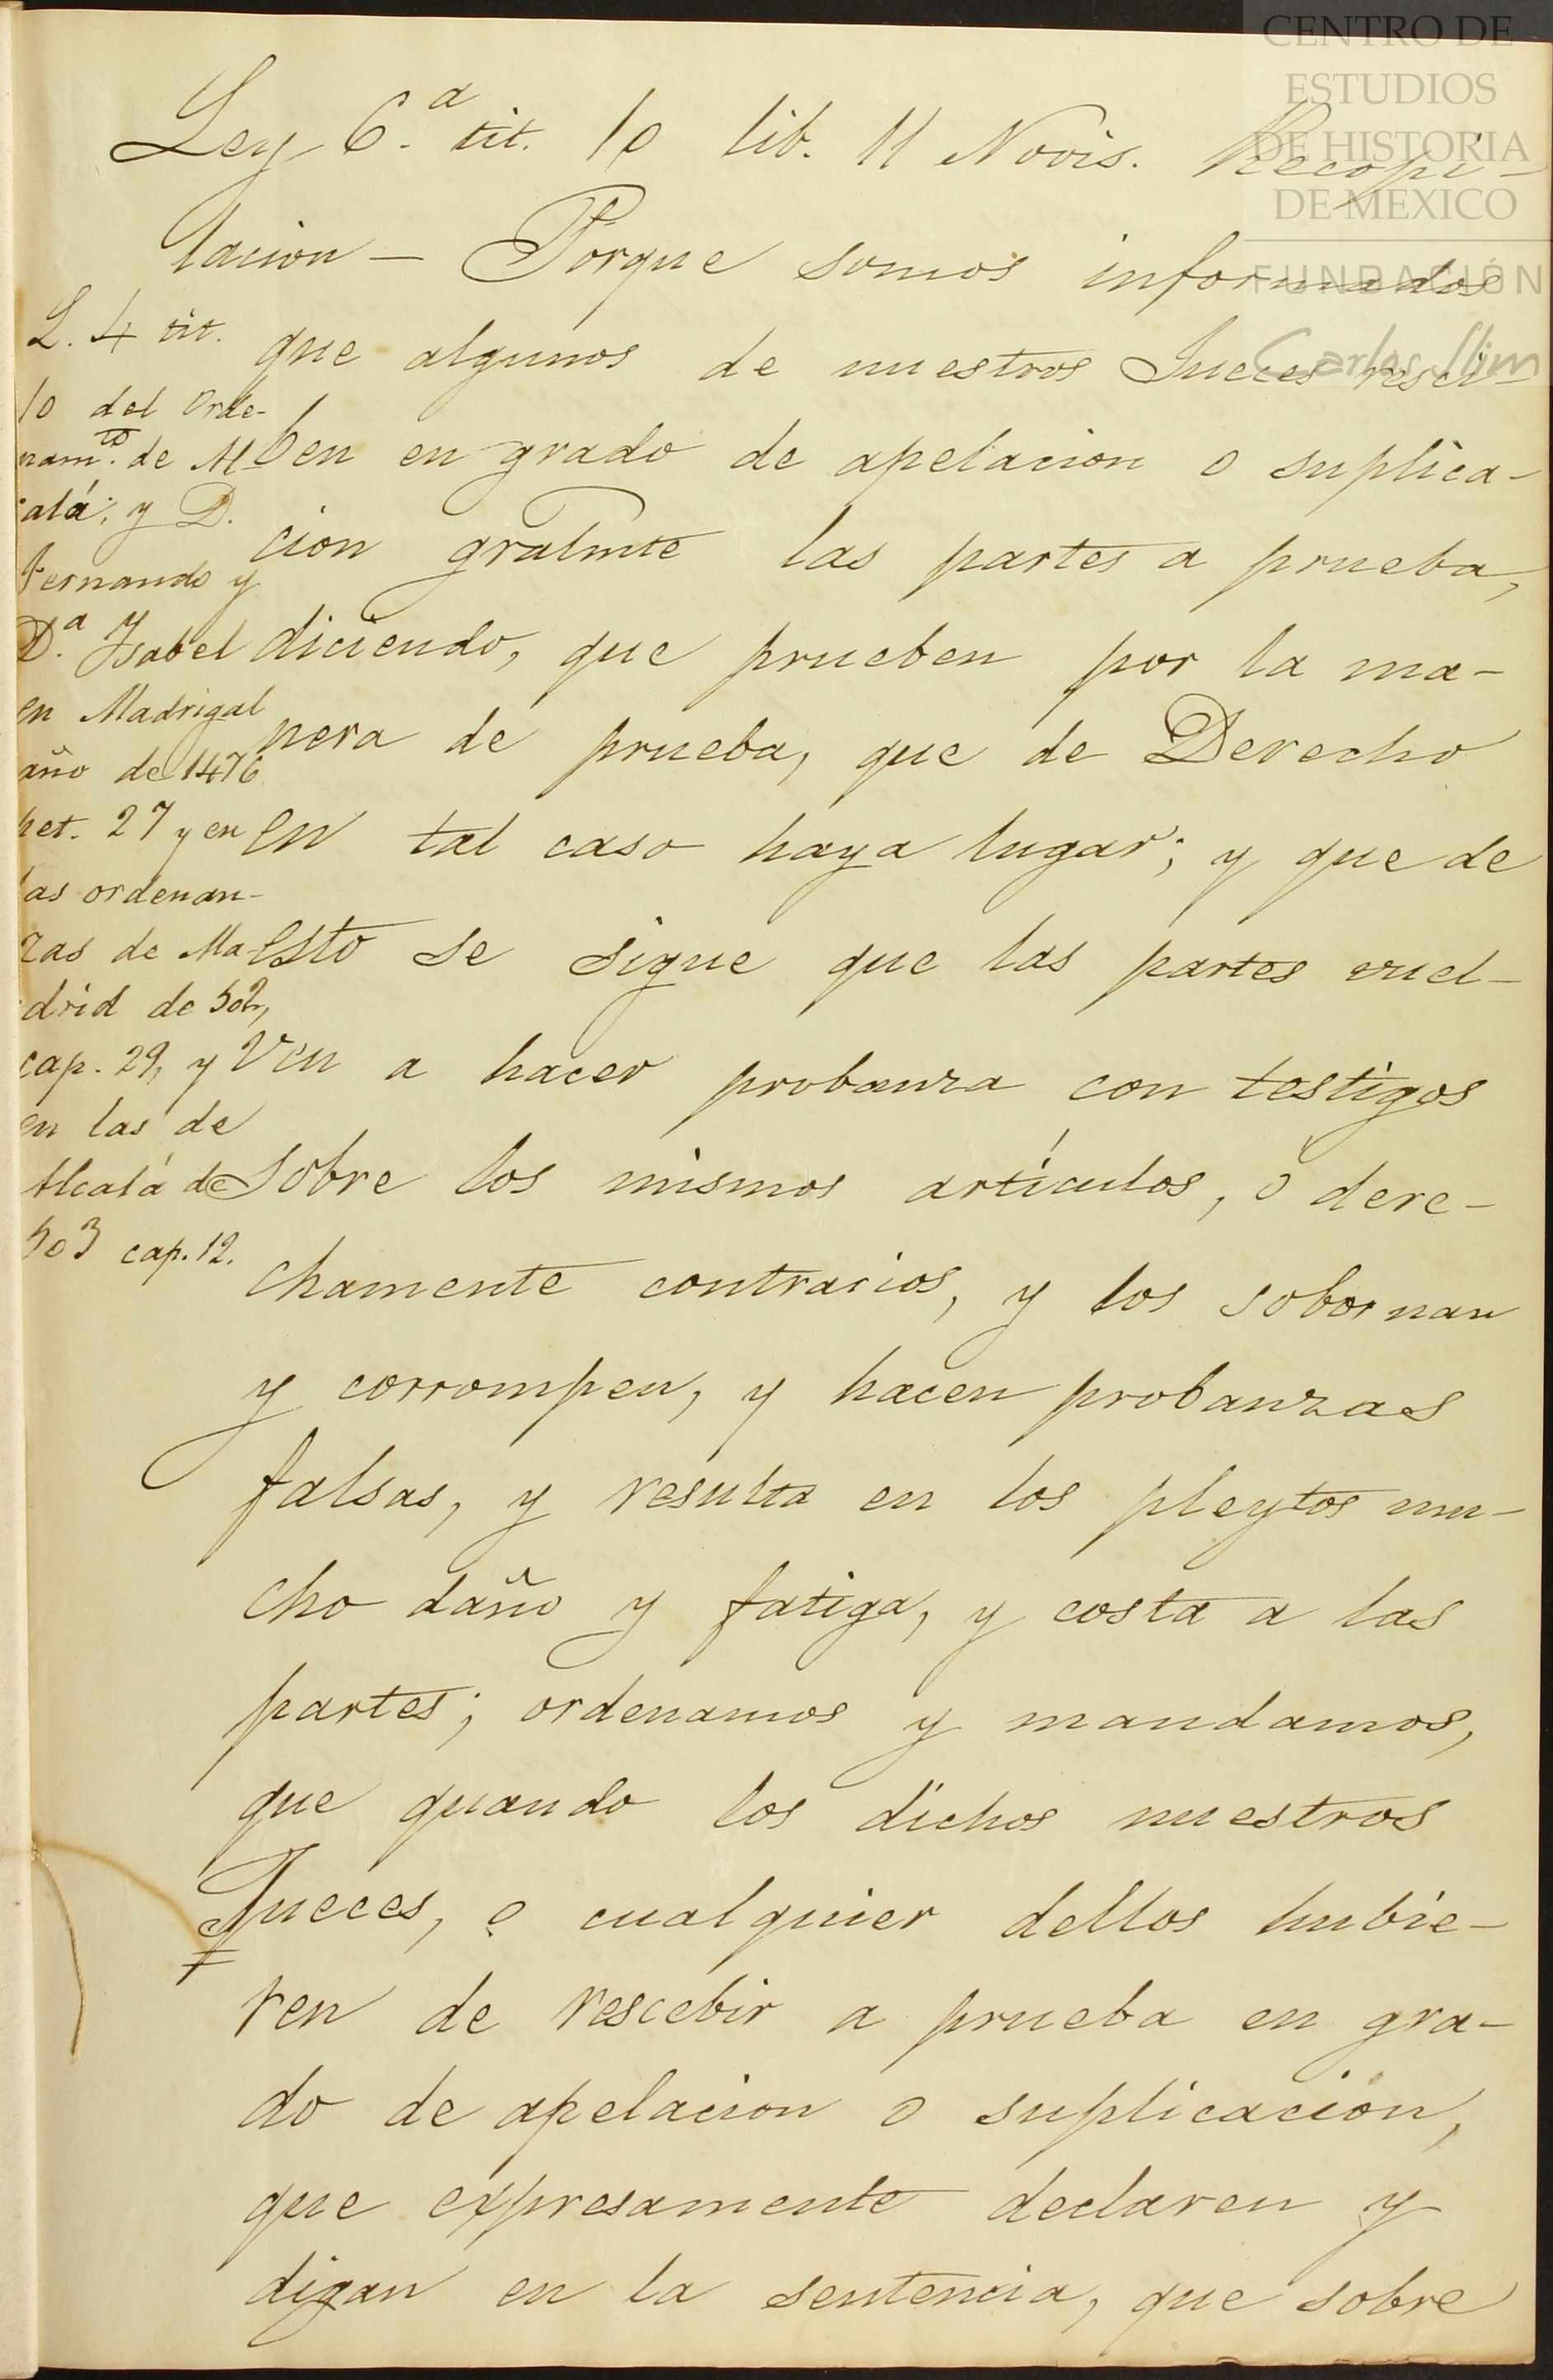 CENTRO DE
ESTUDIOS
DE HISTORIA
DE MEXICO
FUNDACIÓN
Carlos Slim
Ley 6.ª tit. 10 lib. 11 Novis. Recopi-
lacion — Porque somos informados
que algunos de nuestros Jueces resci-
ben en grado de apelacion o suplica-
cion gralmte las partes a prueba,
diciendo, que prueben por la ma-
nera de prueba, que de Derecho
en tal caso haya lugar; y que de
esto se sigue que las partes vuel-
ven a hacer probanza con testigos
sobre los mismos artículos, ó dere-
chamente contrarios, y los sobornan
y corrompen, y hacen probanzas
falsas, y resulta en los pleytos mu-
cho daño y fatiga, y costa a las
partes; ordenamos y mandamos,
que quando los dichos nuestros
Jueces, o cualquier dellos hubie-
ren de rescebir a prueba en gra-
do de apelacion o suplicacion,
que expresamente declaren y
digan en la sentencia, que sobre
L. 4 tit.
10 del Orde-
nam.to de Al-
calá; y D.
Fernando y
D.ª Isabel
en Madrigal
año de 1476
pet. 27 y en
las ordenan-
zas de Ma-
drid de 502,
cap. 29, y
en las de
Alcalá de
503 cap. 12.